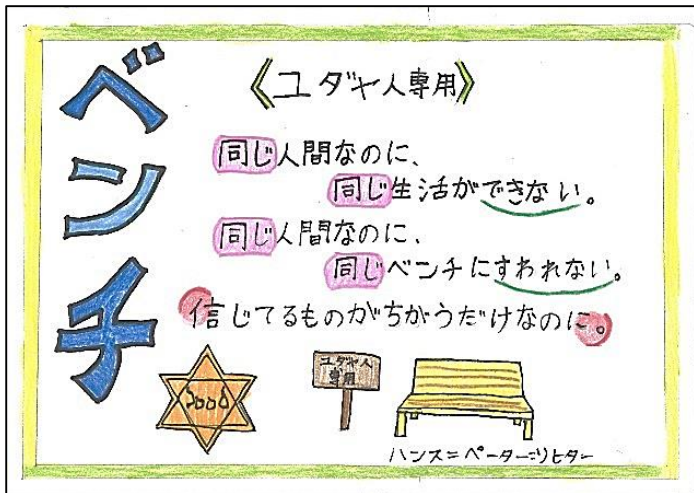 ベンチ
《ユダヤ人専用》
同じ人間なのに、
同じ生活ができない。
同じ人間なのに、
同じベンチにすわれない。
信じてるものがちがうだけなのに。
ユダヤ人
専用
ハンス=ペーター=リヒター